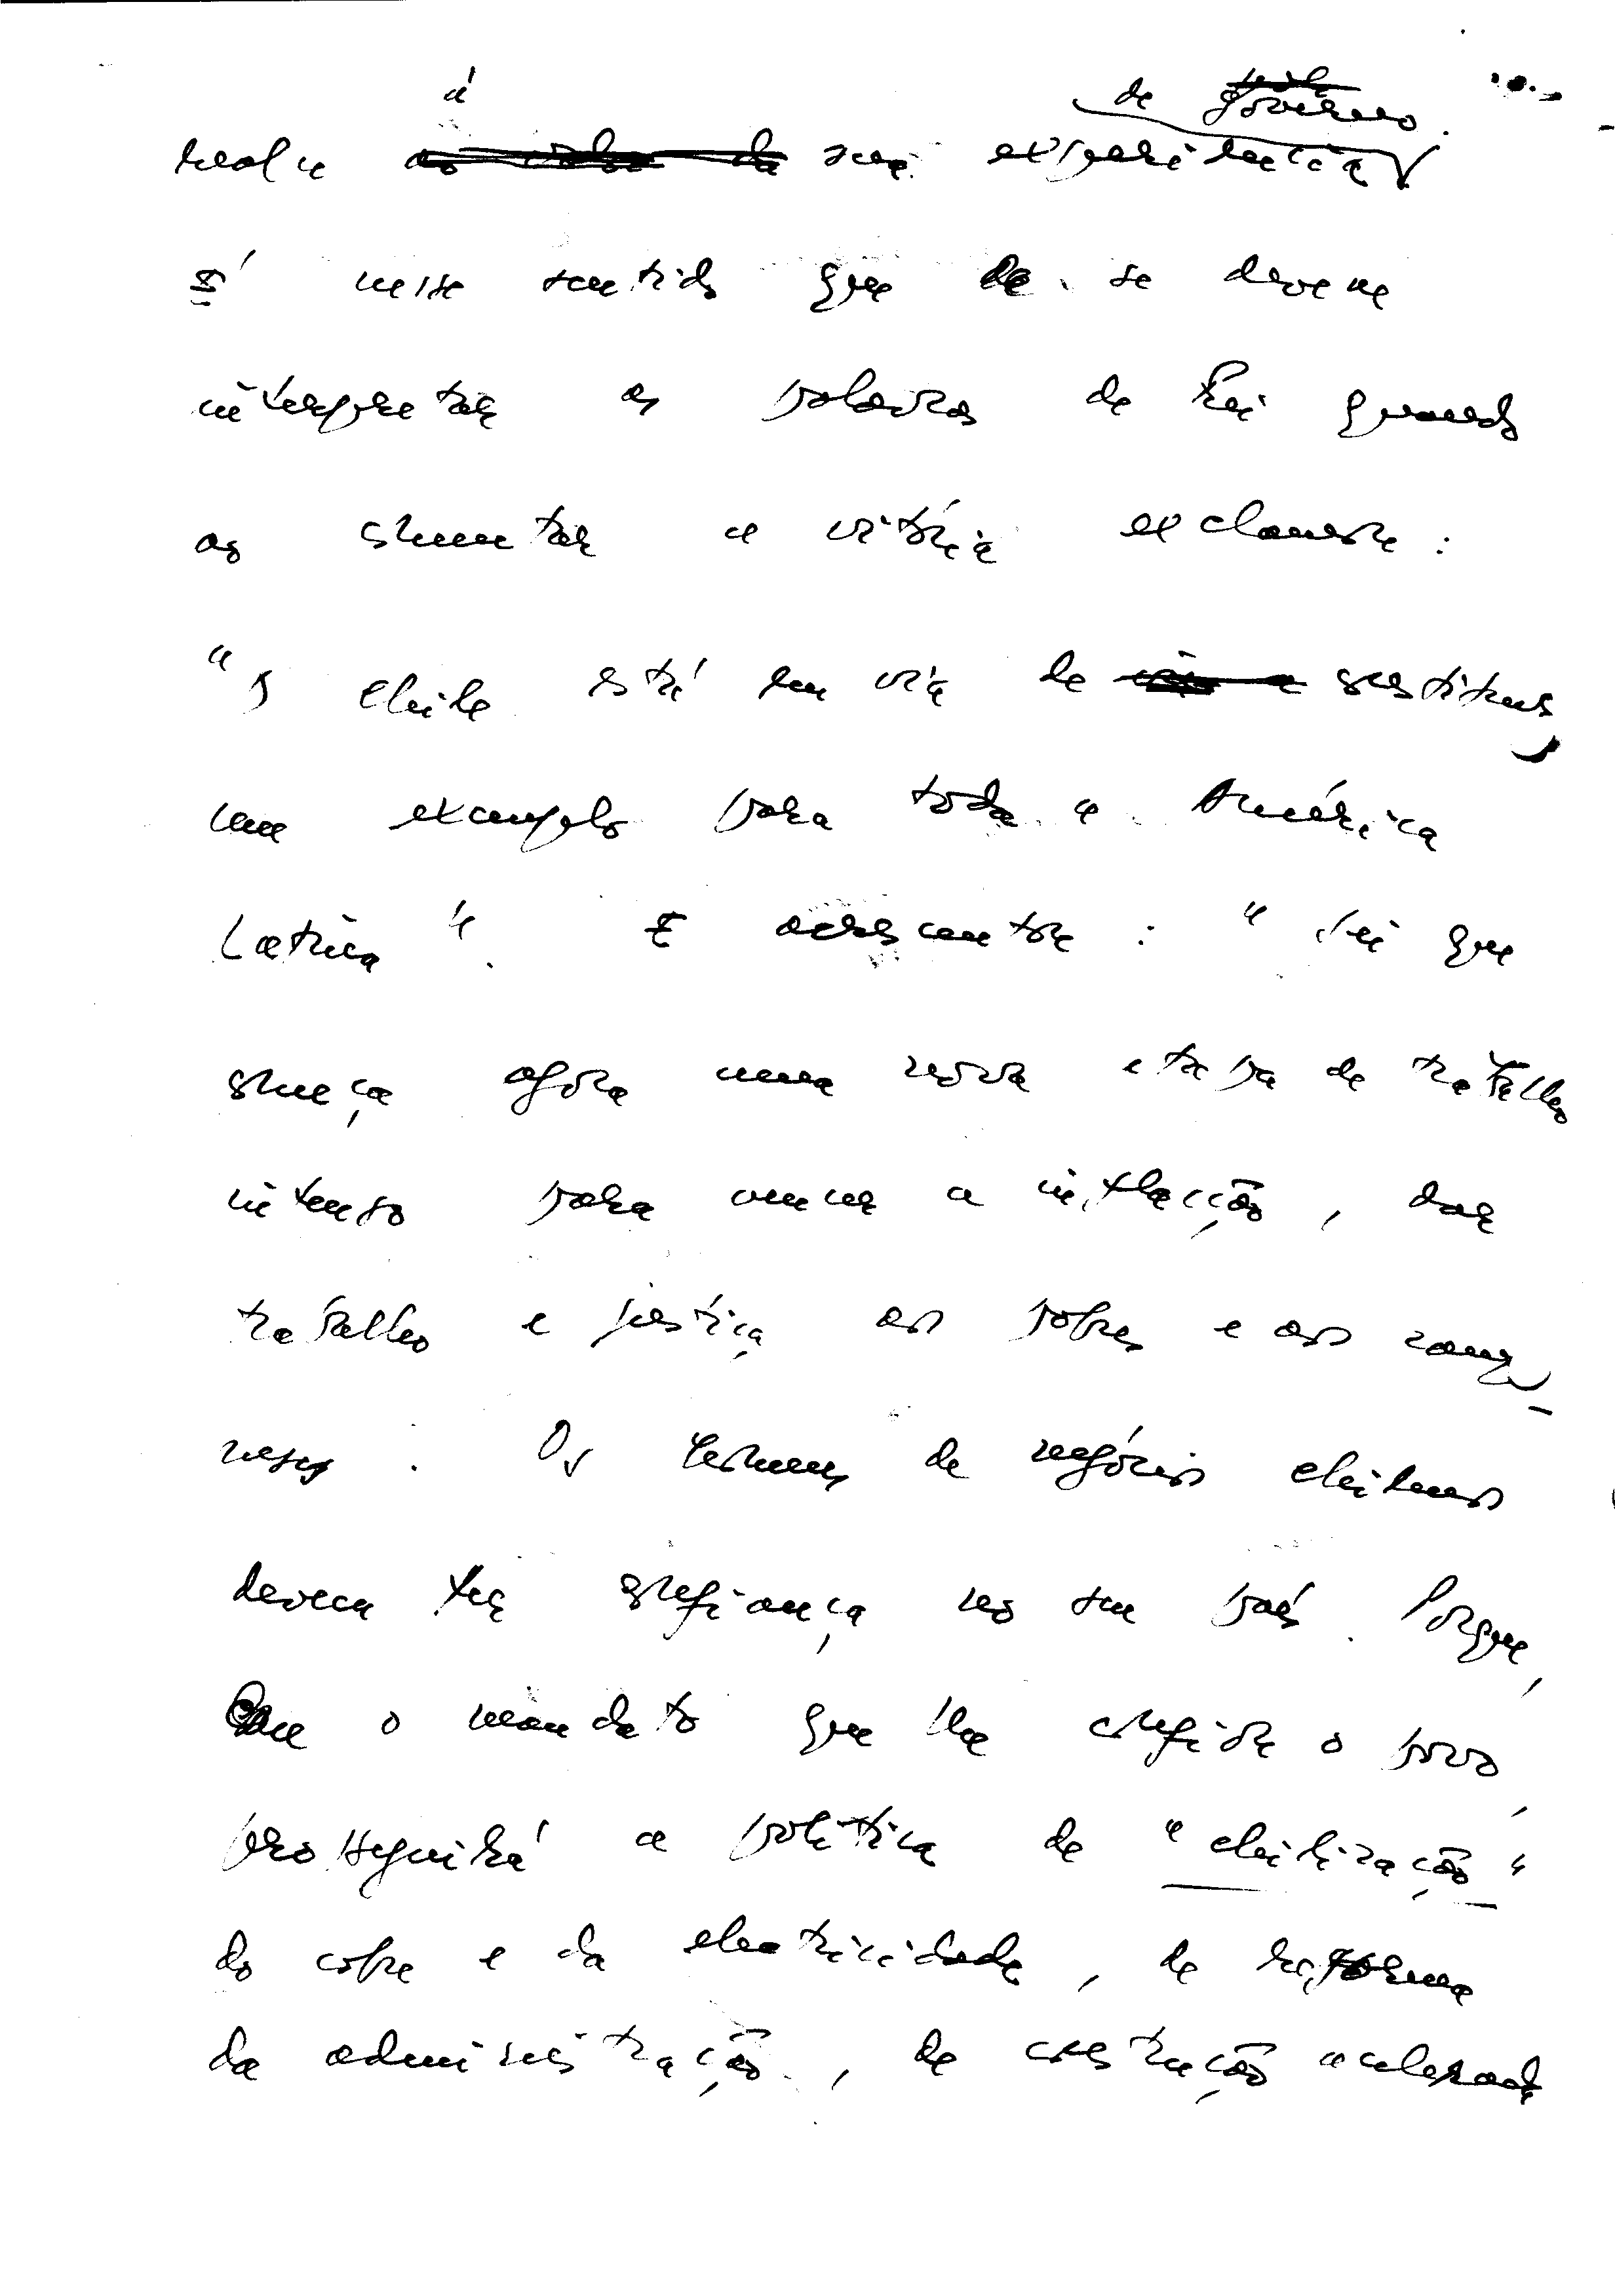 à de governo
sua experiência
É nesse sentido que se devem
interpretar as palavras de Frei quando
ao comentar a vitória exclamou:
"O Chile está em via de constituir
um exemplo para toda a América
Latina". E acrescentou: "Sei que
começa agora uma nova etapa de trabalho
intenso para vencer a inflação, dar
trabalho e justiça aos pobres e aos campo-
neses. Os homens de negócios chilenos
devem ter confiança no seu país. Porque,
com o mandato que lhe confiou o povo,
prosseguirá a política de "chilização"
do cobre e da electricidade, de reforma
da administração, de construção acelerada